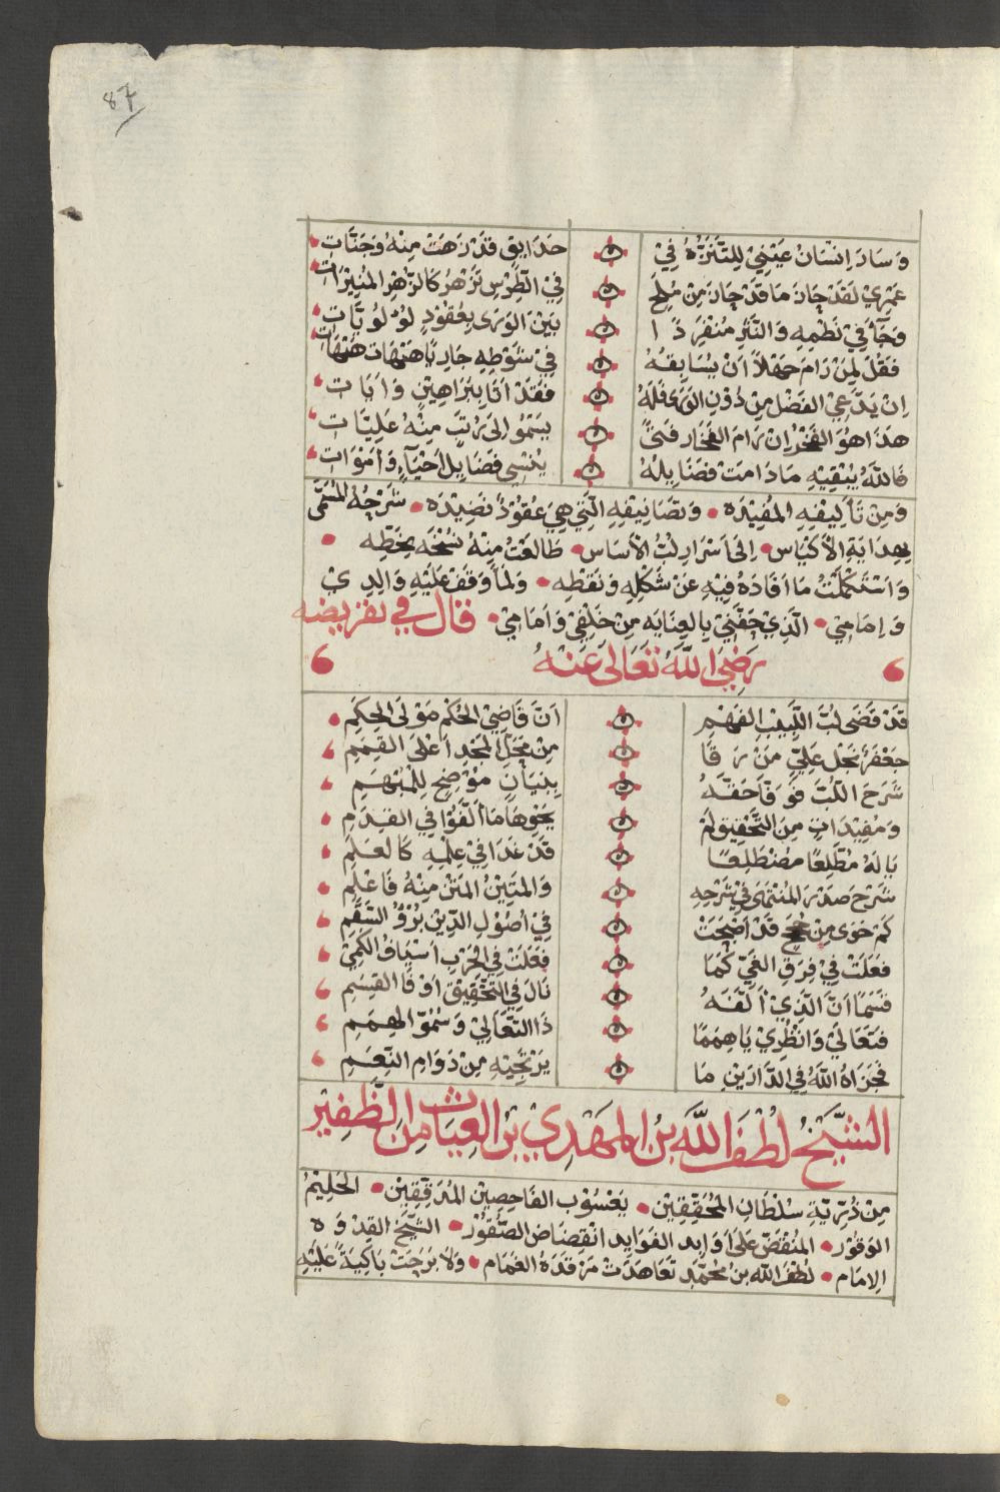 87
وَسَارَ اِنْسَانُ عَيْنِيْ لِلتَّنَزُّهِ فِيْ حَدَايِقٍ قَدْ زَهَتْ مِنْهُ وَجَنَّاتِ
عَمْرِيْ لَقَدْ حَازَ مَا قَدْ حَازَ مِنْ مُلَحٍ فِيْ الطِّرْسِ تَزْهُرُ كَالزُّهْرِ المُنِيْرَاتِ
وَجَآءَ فِيْ نَظْمِهِ وَالنَّثْرِ مُنْفَرِدًا بَيْنَ الوَرَى بِعُقُوْدٍ لُؤْلُؤِيَّاتِ
فَقُلْ لِمَنْ رَامَ جَهْلًا اَنْ يُسَابِقَهُ فِيْ شَوْطِهِ جَارِيًا هَيْهَات هَيْهَاتِ
اِنْ يَدَّعِيْ الفَضْلَ مِنْ دُوْنِ الوَرَى فَلَهُ فَقَدْ اَتَا بِبَرَاهِيْنٍ وَاَيَاتِ
هَذَا هُوَ الفَخْرُ اِنْ رَامَ الفَخَارَ فَتىً يَسْمُو اِلَى رُتَبٍ مِنْهُ عَلِيَّاتِ
فَاللّٰهُ يُبْقِيْهِ مَا دَامَتْ فَضَايِلُهُ يُنْسِي فَضَايِلَ اَحْيَآءٍ وَاَمْوَاتِ
وَمِنْ تَأَلِيْفِهِ المُفِيْدَه • وَتَصَانِيْفِهِ الَّتِي هِيَ عُقُوْدٌ نَضِيْدَه • شَرْحُهُ المُسَمَّى
بِهِدَايَةِ الاَكْيَاس • اِلَى اَسْرَارِ لُبِّ الاَسَاس • طَالَعْتُ مِنْهُ نُسْخَه بِخَطِّه •
وَاسْتَكْمَلْتُ مَا اَفَادَهُ فِيْهِ عَنْ شَكْلِهِ وَنَقْطِه • وَلَمَّا وَقَفَ عَلَيْهِ وَالِدِيْ
وَاِمَامِيْ • الَّذِيْ حَفَّنِيْ بِالعِنَايَه مِنْ خَلْفِيْ وَاَمَامِيْ • قَالَ فِي تَقْرِيضِه
رَضِيَ اللّٰهُ تَعَالَى عَنْهُ
قَدْ قَضَى لُبُّ اللَّبِيْبِ الفَهِمِ اَنَّ قَاضِيْ الحُكْمِ مَوْلَى الحِكَمِ
جَعْفَرٌ نَجْلُ عَلِيٍّ مَنْ رَقَا مِنْ مَحَلِّ المَجْدِ اَعْلَى القِمَمِ
شَرَحَ اللُّبَّ فَوَفَّا حَقَّهُ بِبَيَانٍ مُوْضِحٍ لِلْمُبْهَمِ
وَمُفِيْدَاتٍ مِنَ التَّحْقِيْقِ لَمْ يَحْوِهَا مَا اَلَّفُوْا فِي القِدَمِ
يَا لَهُ مُطَّلِعًا مُضْطَلِعًا قَدْ غَدَا فِيْ عِلْمِهِ كَالعَلَمِ
شَرْحُ صَدْرِ المُنْتَهَى فِيْ شَرْحِهِ وَالمَتِيْنُ المَتْنُ مِنْهُ فَاعْلَمِ
كَمْ حَوَى مِنْ حُجَجٍ قَدْ اَضْحَتْ فِيْ اُصُوْلِ الدِّيْنِ بُرْؤُ السَّقَمِ
فَعَلَتْ فِيْ فِرَقِ الغَيِّ كَمَا فَعَلَتْ فِي الحَرْبِ اَسْيَافُ الكَمِيْ
قَسَمًا اَنَّ الَّذِيْ اَلَّفَهُ نَالَ فِي التَّحْقِيْقِ اَوْفَا القِسَمِ
فَتَعَالَيْ وَانْظُرِيْ يَا هِمَمًا ذَا التَّعَالِيْ وَسُمُوَّ الهِمَمِ
فَجَزَاهُ اللّٰهُ فِي الدَّارَيْنِ مَا يَرْتَجِيْهِ مِنْ دَوَامِ النِّعَمِ
الشَّيْخُ لُطْفُ اللّٰهِ بْنُ المَهْدِيْ بْنِ الغِيَاثِ مِنَ الظَّفِيْرِ
مِنْ ذُرِّيَّةِ سُلْطَانِ المُحَقِّقِيْن • يَعْسُوْبِ الفَاحِصِيْن المُدَقِّقِيْن • الحَلِيْمُ
الوَقُوْر • المُنْقَضّ عَلَى اَوَابِدِ الفَوَايِد انْقِضَاضَ الصُّقُوْر • الشَّيْخ القِدْوَه
الاِمَام • لُطْفُ اللّٰه بْنُ مُحَمَّد تَعَاهَدَتْ مَرْقَدَهُ الغَمَام • وَلَا بَرِحَتْ بَاكِيَةً عَلَيْهِ